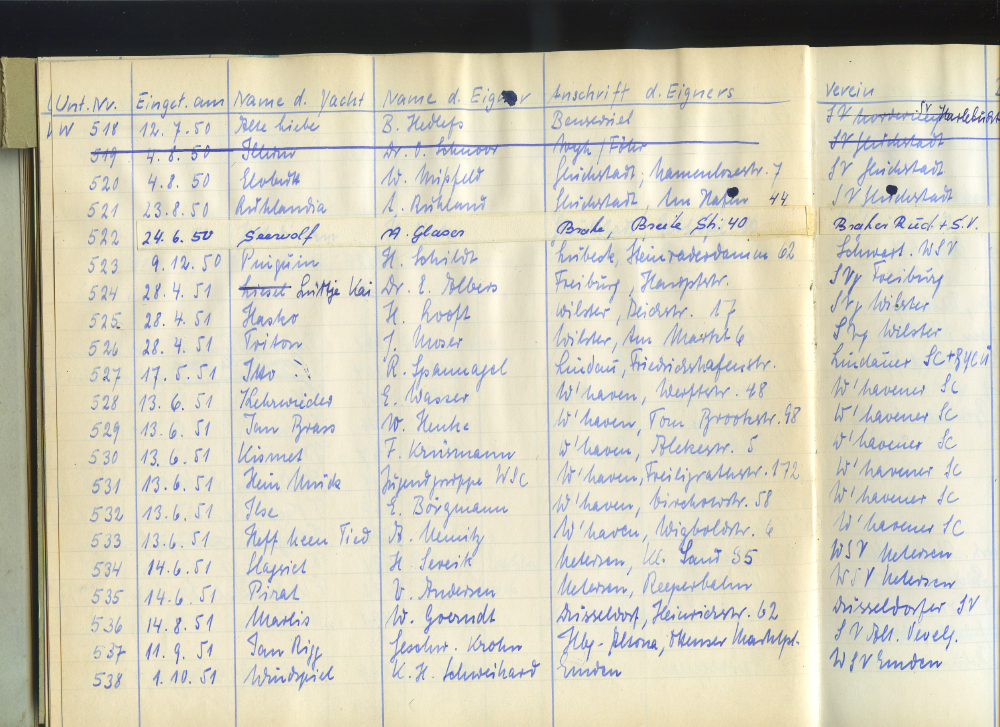 Unt. Nr. Einget. am Name d. Yacht Name d. Eigner Anschrift d. Eigners Verein
W 518 12.7.50 Alte Liebe B. Hedlefs Bensersiel SV
519 4.8.50 Dr. O. Schnoor Wyk / Föhr SV Glückstadt
520 4.8.50 W. Glückstadt, Namenlosestr. 7 SV Glückstadt
521 23.8.50 Ruhlandia A. Ruhland Glückstadt, Am Hafen 44 SV Glückstadt
522 24.6.50 Seewolf A. Glaser Brake, Breite Str. 40 Braker Rud + S.V.
523 9.12.50 Pinguin H. Schildt Lübeck, 62 Schwart. WSV
524 28.4.51 Liesel Lüttje Kai Dr. E. Albers Freiburg, Hauptstr. SVg Freiburg
525 28.4.51 Hasko H. Rooft Wilster, Deichstr. 17 SVg Wilster
526 28.4.51 Triton J. Moser Wilster, Am Markt 6 SVg Wilster
527 17.5.51 R. Spannagel Lindau, Friedrichshafenstr. Lindauer SC +
528 13.6.51 Kehrwieder E. Wasser W'haven, Werftstr. 48 W'havener SC
529 13.6.51 Jan Brass W. Henke W'haven, Tom Brookstr. 98 W'havener SC
530 13.6.51 Kismet F. W'haven, 5 W'havener SC
531 13.6.51 Hein Mück Jugendgruppe WSC W'haven, Freiligrathstr. 172 W'havener SC
532 13.6.51 Ilse E. Börgmann W'haven, Virchowstr. 58 W'havener SC
533 13.6.51 Heff keen Tied A. Nemitz W'haven, Wigboldstr. 6 W'havener SC
534 14.6.51 H. Uetersen, Kl. Sand 35 WSV Uetersen
535 14.6.51 Pirat V. Andersen Uetersen, Reeperbahn WSV Uetersen
536 14.8.51 Marlis W. Goerndt Düsseldorf, Heinrichstr. 62 Düsseldorfer SV
537 11.9.51 Jan Rigg Geschw. Krohn Hbg-Altona, Ottenser Marktpl. SV Alt. Oevelg.
538 1.10.51 Windspiel K. H. Schweikard Emden WSV Emden